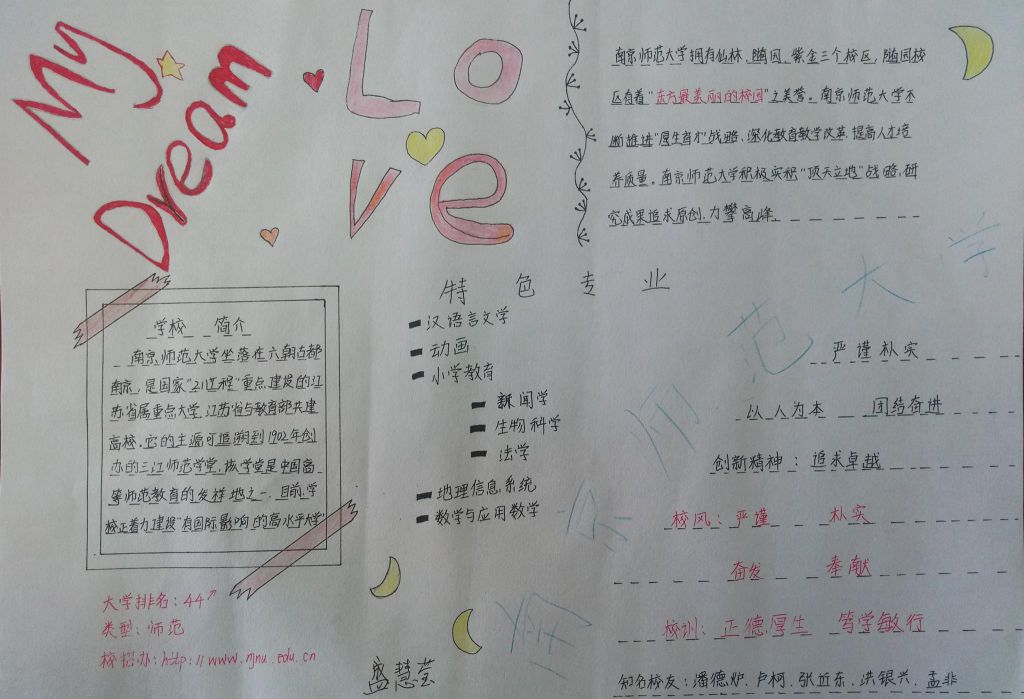 My
Dream
Lo
ve
南京师范大学拥有仙林、随园、紫金三个校区,随园校
区有着"东方最美丽的校园"之美誉。南京师范大学不
断推进"厚生育才"战略,深化教育教学改革,提高人才培
养质量。南京师范大学积极实积"顶天立地"战略,研
究成果追求原创,力攀高峰
学校 简介
南京师范大学坐落在六朝古都
南京,是国家"211工程"重点建设的江
苏省属重点大学,江苏省与教育部共建
高校。它的主源可追溯到1902年创
办的三江师范学堂,该学堂是中国高
等师范教育的发祥地之一.目前,学
校正着力建设"有国际影响的高水平大学"
大学排名:44↗
类型:师范
校招办:http://www.njnu.edu.cn
特色专业
汉语言文学
动画
小学教育
新闻学
生物科学
法学
地理信息系统
数学与应用数学
盛慧莹
南京师范大学
严谨朴实
以人为本 团结奋进
创新精神:追求卓越
校风:严谨 朴实
奋发 奉献
校训:正德厚生 笃学敏行
知名校友:潘德炉.卢柯.张近东.洪银兴.孟非